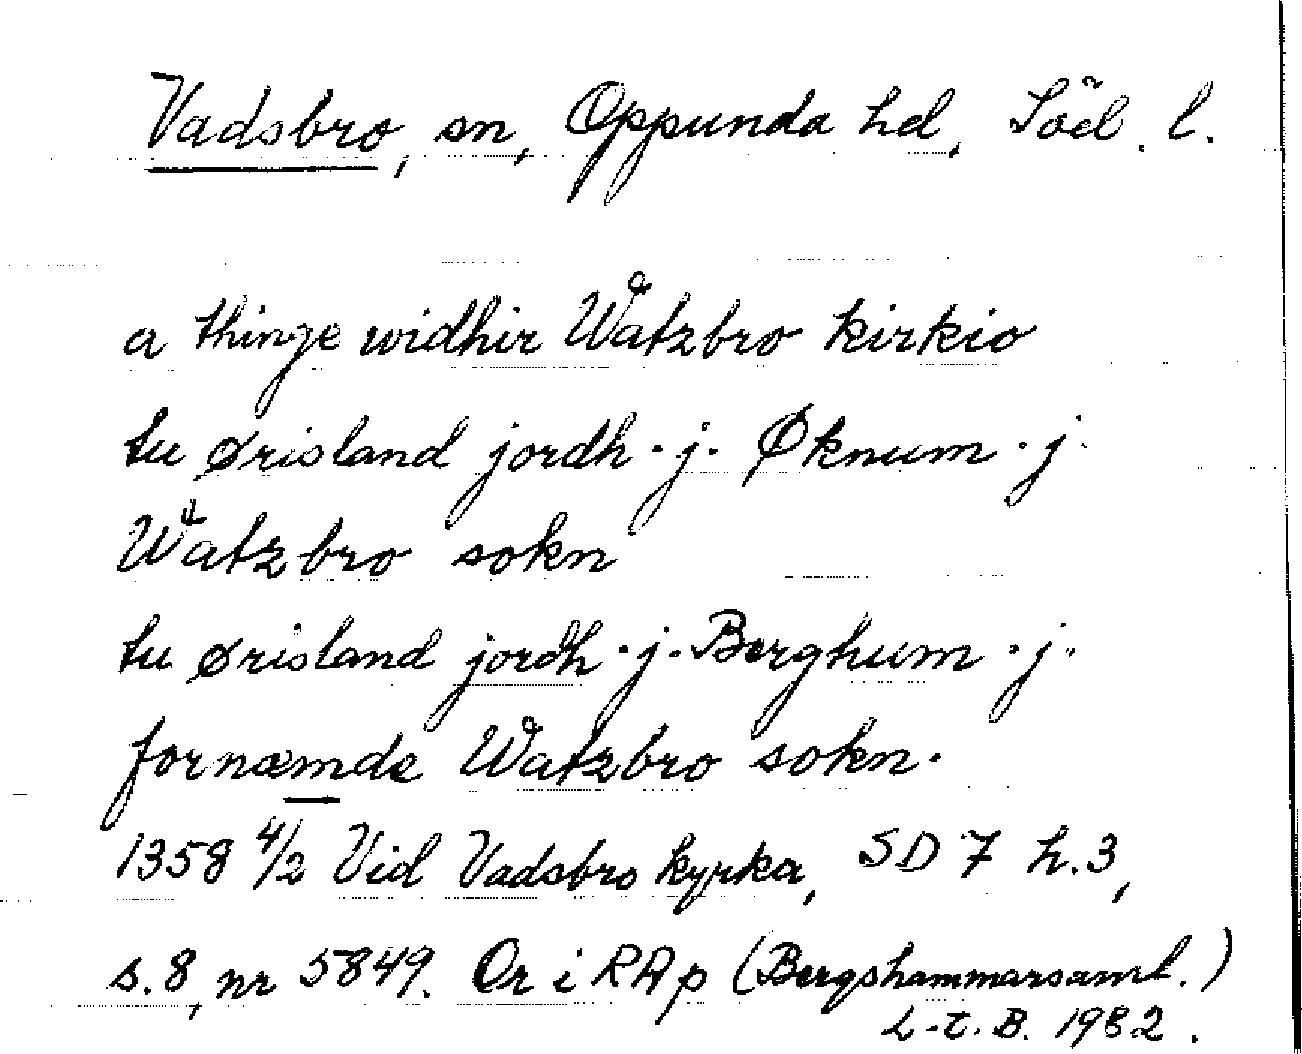 Vadsbro, sn, Oppunda hd, Söd. l.
a thinge widhir Watzbro kirkio
tu ørisland jordh · j · Øknum · j ·
Watzbro sokn
tu ørisland jordh · j · Berghum · j ·
fornæmde Watzbro sokn ·
1358 4/2 Vid Vadsbro kyrka, SD 7 h. 3,
s. 8, nr 5849. Or i RAp (Bergshammarsaml.)
L-t. B. 1982.